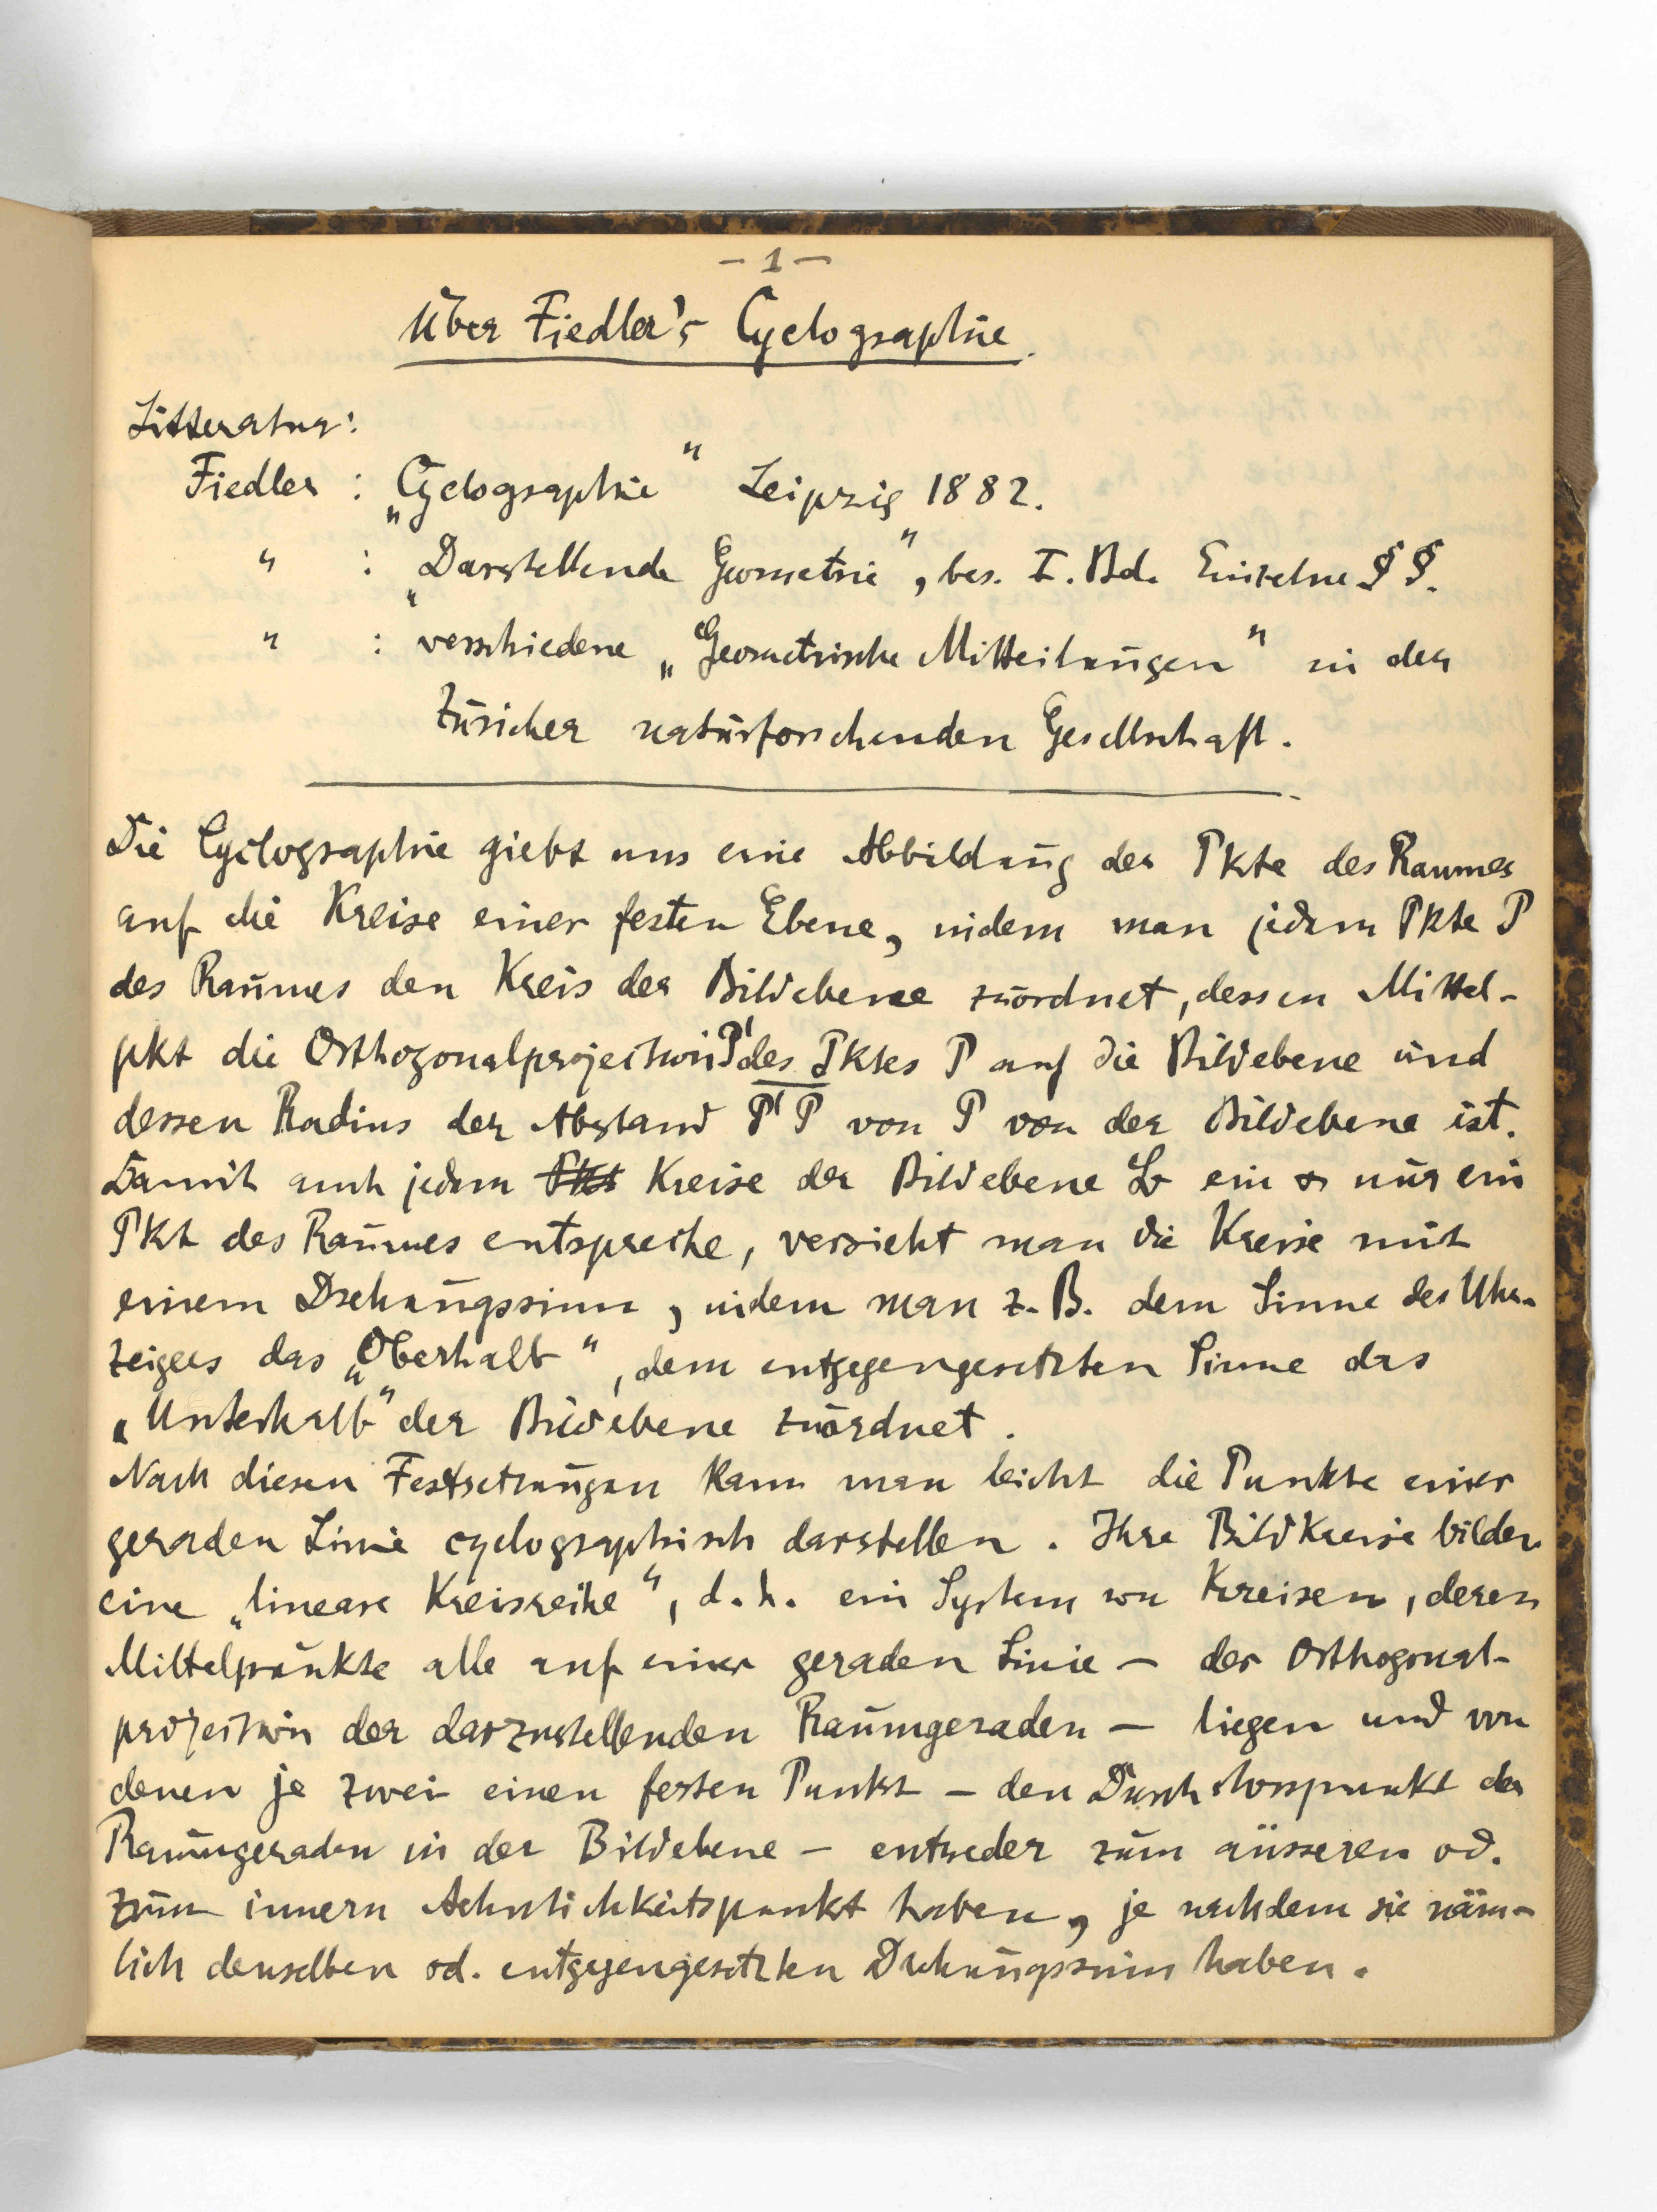 – 1 –
Über Fiedler's Cyclographie.
Litteratur:
Fiedler : „Cyclographie“ Leipzig 1882.
" : „Darstellende Geometrie“, bes. I. Bd. Einzelne §§.
" : verschiedene „Geometrische Mitteilungen“ in der
Züricher naturforschenden Gesellschaft.
Die Cyclographie giebt uns eine Abbildung der Pkte des Raumes
auf die Kreise einer festen Ebene, indem man jedem Pkte P
des Raumes den Kreis der Bildebene zuordnet, dessen Mittel-
pkt die Orthogonalprojection P' des Pktes P auf die Bildebene und
dessen Radius der Abstand P'P von P von der Bildebene ist.
Damit auch jedem Pkt Kreise der Bildebene ein & nur ein
Pkt des Raumes entspreche, versieht man die Kreise mit
einem Drehungssinn, indem man z. B. dem Sinne des Uhr-
zeigers das „Oberhalb“, dem entgegengesetzten Sinne das
„Unterhalb“ der Bildebene zuordnet.
Nach diesen Festsetzungen kann man leicht die Punkte einer
geraden Linie cyclographisch darstellen. Ihre Bildkreise bilden
eine „lineare Kreisreihe“, d. h. ein System von Kreisen, deren
Mittelpunkte alle auf einer geraden Linie – der Orthogonal-
projection der darzustellenden Raumgeraden – liegen und von
denen je zwei einen festen Punkt – den Durchstosspunkt der
Raumgeraden in der Bildebene – entweder zum äusseren od.
zum innern Aehnlichkeitspunkt haben, je nachdem sie näm-
lich denselben od. entgegengesetzten Drehungssinn haben.